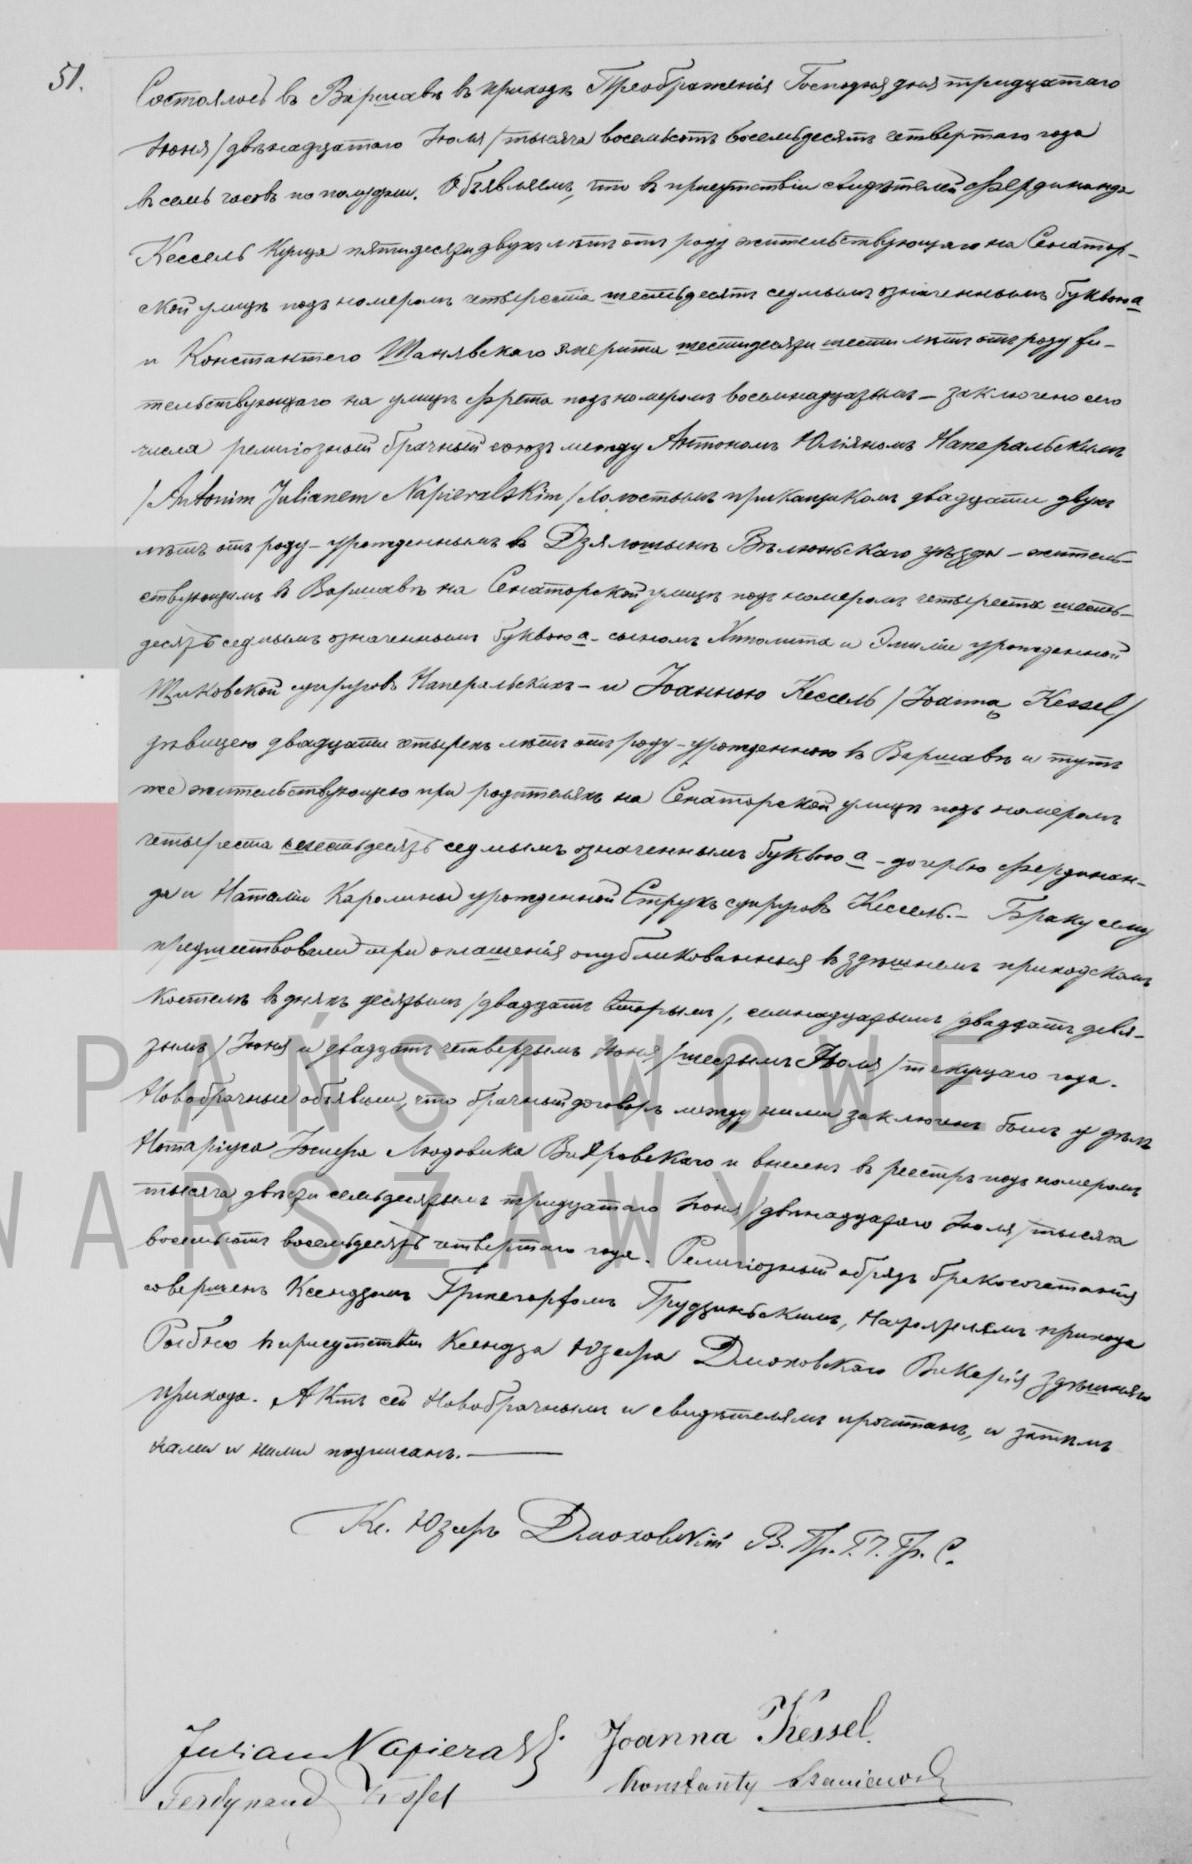 51.
Состоялось въ Варшавѣ въ приходѣ Преображенія Господня дня тридцатаго
Іюня /двѣнадцатаго Іюля/ тысяча восемьсотъ восемьдесятъ четвертаго года
въ семь часовъ по полудни. Объявляемъ, что въ присутствіи свидѣтелей Фердинанда
Кессель Купца пятидесяти двухъ лѣтъ отъ роду жительствующаго на Сенатор-
ской улицѣ подъ номеромъ четыреста шестьдесятъ седмымъ означеннымъ буквою а
и Константего Шанявскаго эмерита шестидесяти шести лѣтъ отъ роду жи-
тельствующаго на улицѣ Фрета подъ номеромъ восемнадцатымъ – заключено сего
числа религіозный брачный союзъ между Антономъ Юліаномъ Наперальскимъ
/Antonim Julianem Napieralskim/ холостымъ прикащикомъ двадцати двухъ
лѣтъ отъ роду – урожденнымъ въ Дзялошынѣ Вѣлюньскаго уѣзда – житель-
ствующимъ въ Варшавѣ на Сенаторской улицѣ подъ номеромъ четыреста шесть-
десятъ седмымъ означеннымъ буквою а – сыномъ Ипполита и Эмиліи урожденной
супруговъ Наперальскихъ – и Іоанною Кессель /Joanną Kessel/
дѣвицею двадцати четырехъ лѣтъ отъ роду – урожденною въ Варшавѣ и тутъ
же жительствующею при родителяхъ на Сенаторской улицѣ подъ номеромъ
четыреста шестьдесятъ седмымъ означеннымъ буквою а – дочерью Фердинан-
да и Наталіи Каролины урожденной Струкъ супруговъ Кессель. – Браку сему
предшествовали три оглашенія опубликованныя въ здѣшнемъ приходскомъ
костелѣ въ дняхъ десятымъ /двадцать вторымъ/, семнадцатымъ /двадцать девя-
тымъ/ Іюня и двадцать четвертымъ Іюня /шестымъ Іюля/ текущаго года.
Новобрачные объявили, что брачный договоръ между ними заключенъ былъ у дѣлъ
Нотаріуса Іосифа Людовика и внесенъ въ реестръ подъ номеромъ
тысяча двѣсти семьдесятымъ тридцатаго Іюня /двѣнадцатаго Іюля/ тысяча
восемьсотъ восемьдесятъ четвертаго года. Религіозный обрядъ бракосочетанія
совершенъ Ксендзомъ Гржегоржомъ Грудзиньскимъ, Настоятелемъ прихода
въ присутствіи Ксендза Юзефа Дмоховскаго Викарія здѣшняго
прихода. Актъ сей Новобрачнымъ и свидѣтелямъ прочитанъ, и затѣмъ
нами и ними подписанъ.
Кс. Юзефъ Дмоховскій В. Пр. Г. Г. Гр. С.
Julian Napieralski Joanna Kessel
Ferdynand Kessel Konstanty Szaniawski
PAŃSTWOWE
WARSZAWY